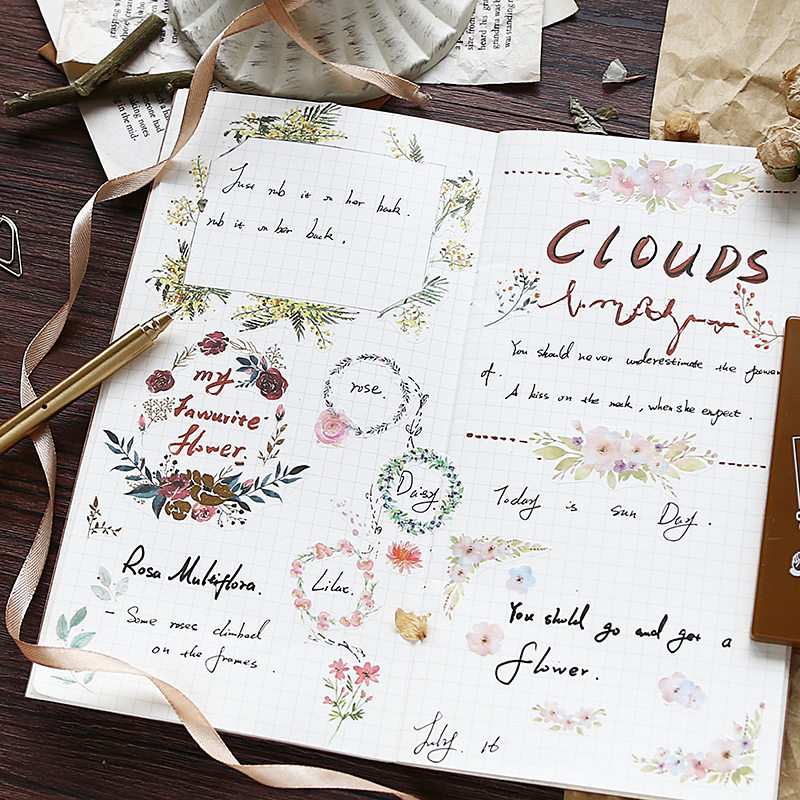 Just rub it on her back.
rub it on her back.
my
Favourite
flower.
rose.
Daisy
Lilac.
Rosa Multiflora.
- Some roses climbed
on the frames.
CLOUDS
You should never underestimate the power
of.
A kiss on the neck, when she expect.
Today is sun Day.
You shold go and get a
flower.
July. 16